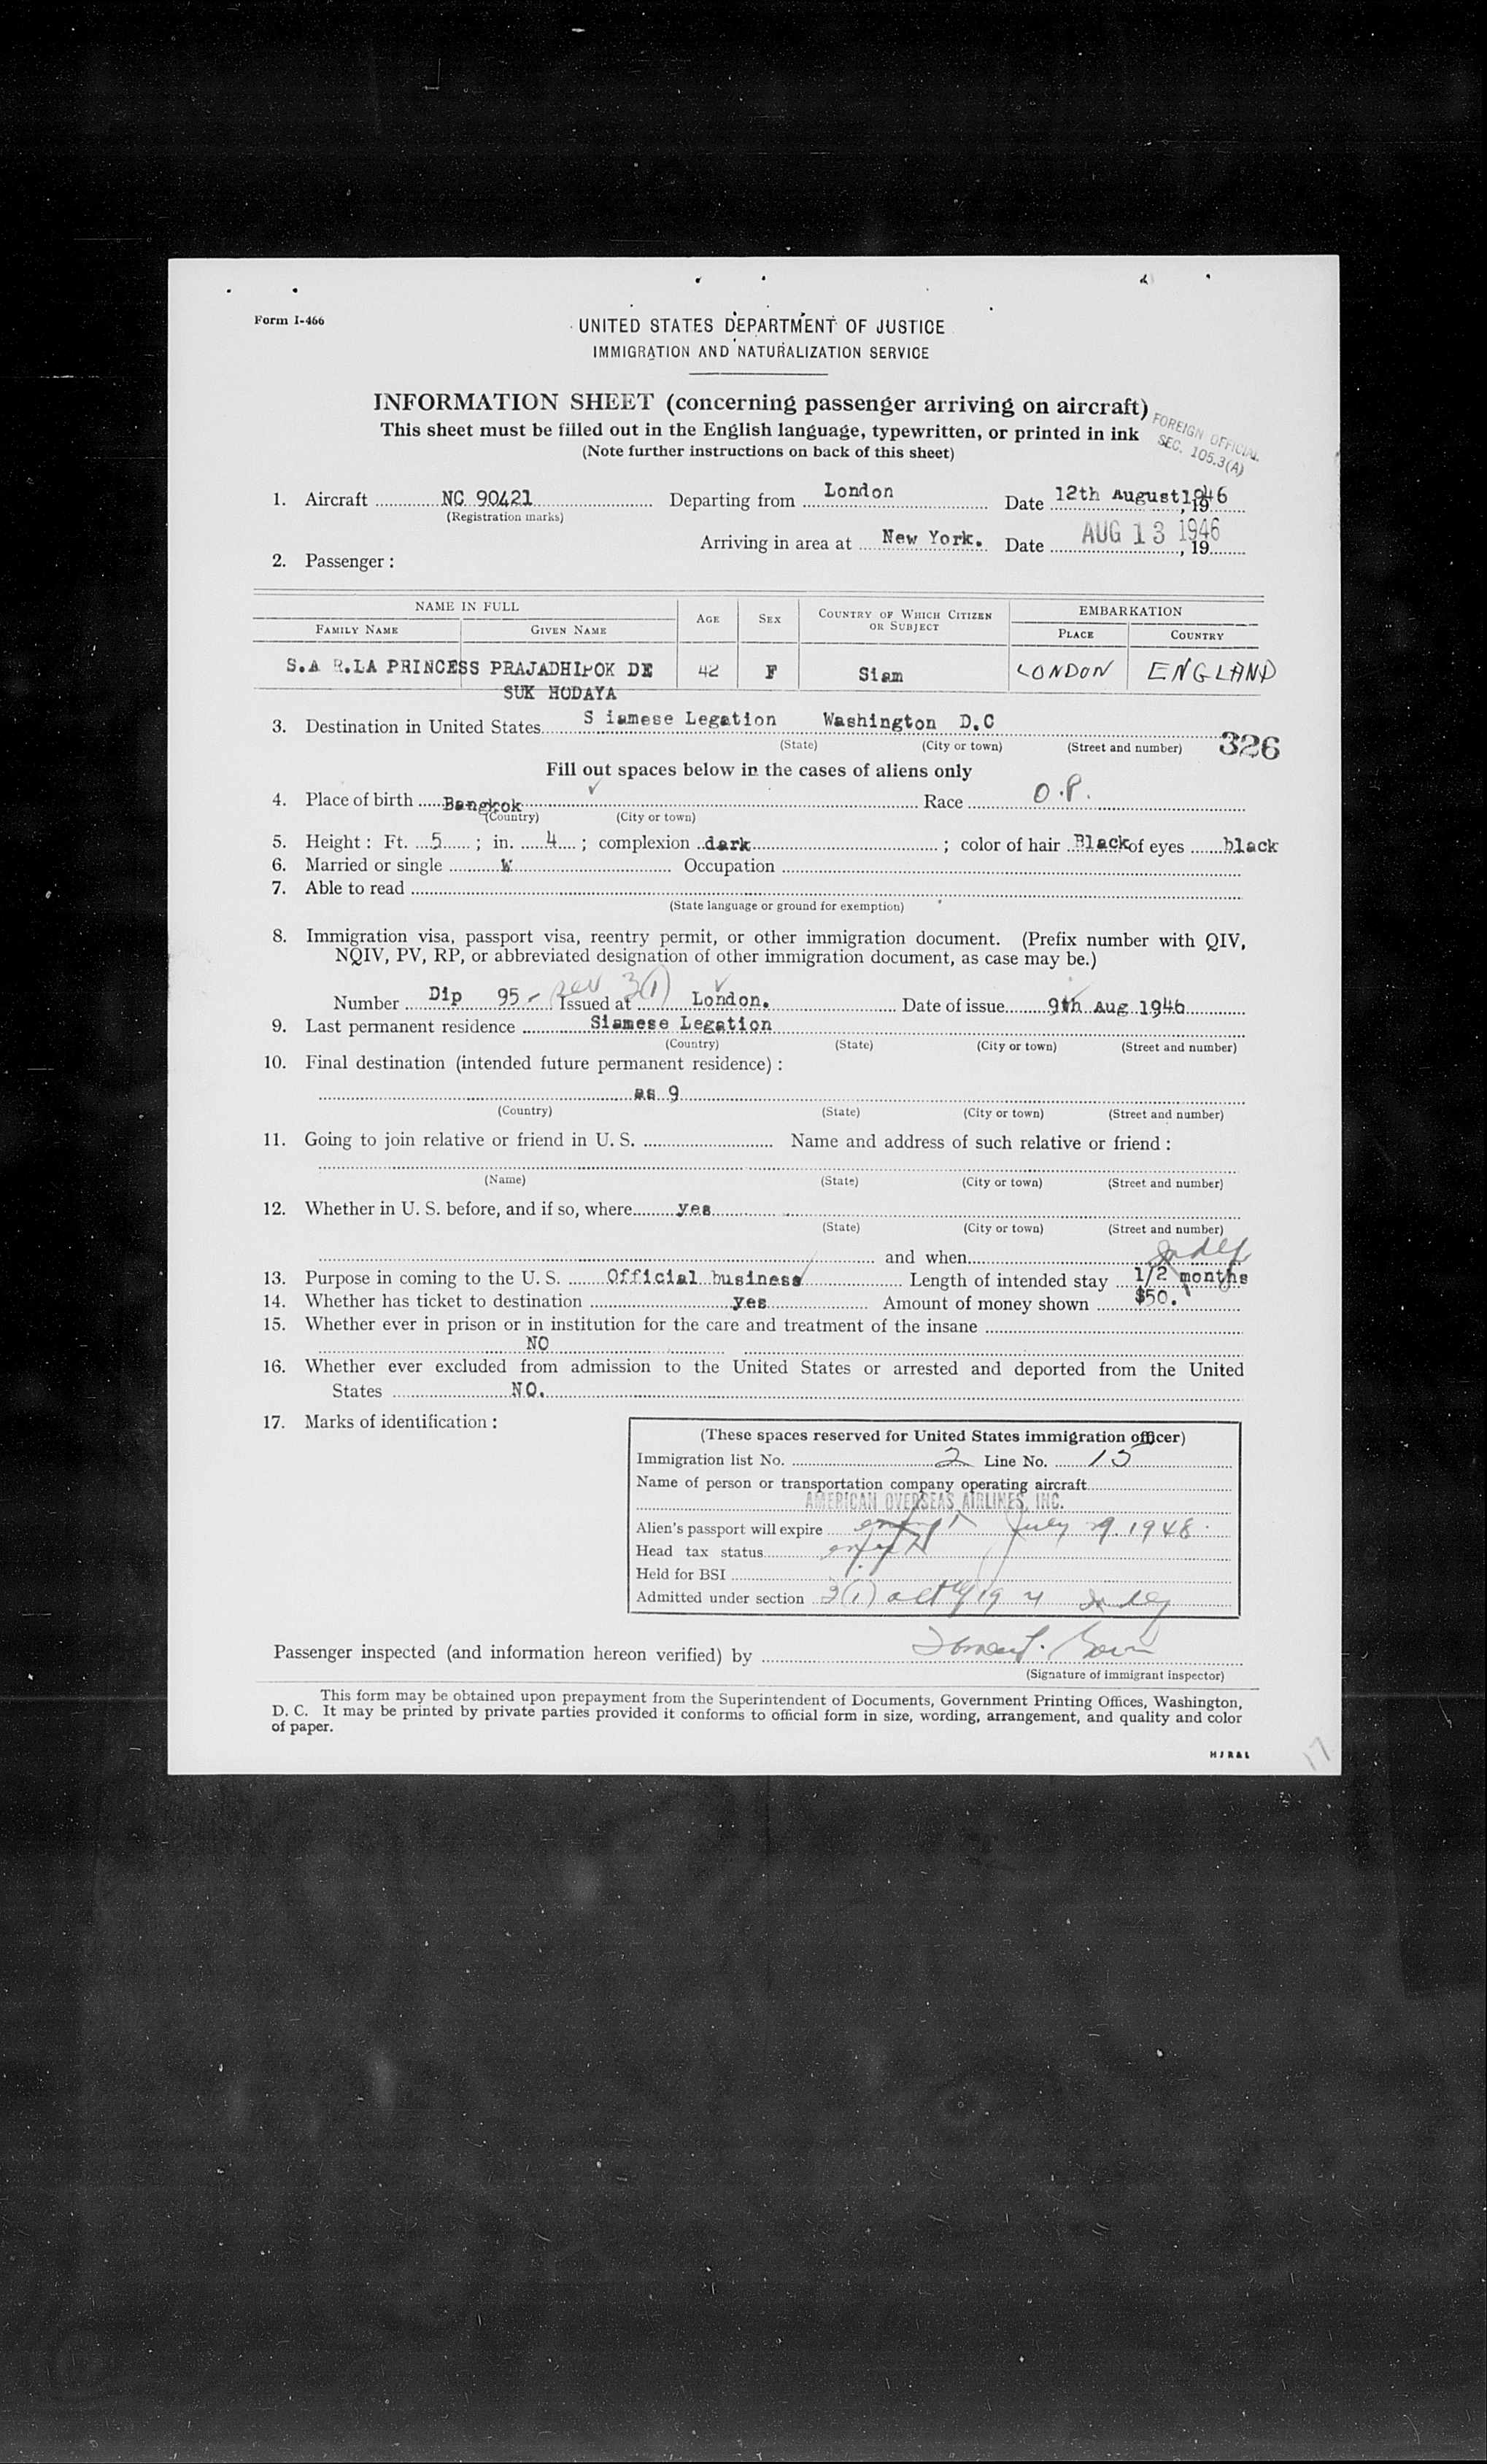 Form I-466
UNITED STATES DEPARTMENT OF JUSTICE
IMMIGRATION AND NATURALIZATION SERVICE
INFORMATION SHEET (concerning passenger arriving on aircraft)
This sheet must be filled out in the English language, typewritten, or printed in ink
(Note further instructions on back of this sheet)
FOREIGN OFFICIAL
SEC. 105.3(A)
1. Aircraft NC 90421 Departing from London Date 12th August 1946, 19
(Registration marks)
Arriving in area at New York. Date AUG 13 1946, 19
2. Passenger:
NAME IN FULL AGE SEX COUNTRY OF WHICH CITIZEN OR SUBJECT EMBARKATION
FAMILY NAME GIVEN NAME PLACE COUNTRY
S.A R.LA PRINCESS PRAJADHIPOK DE 42 F Siam LONDON ENGLAND
SUK HODAYA
3. Destination in United States S iamese Legation Washington D.C
(State) (City or town) (Street and number) 326
Fill out spaces below in the cases of aliens only
4. Place of birth Bangkok Race O.P.
(Country) (City or town)
5. Height: Ft. 5; in. 4; complexion dark; color of hair Black of eyes black
6. Married or single W Occupation
7. Able to read
(State language or ground for exemption)
8. Immigration visa, passport visa, reentry permit, or other immigration document. (Prefix number with QIV,
NQIV, PV, RP, or abbreviated designation of other immigration document, as case may be.)
Number Dip 95- 3(1) Issued at London. Date of issue 9th Aug 1946
9. Last permanent residence Siamese Legation
(Country) (State) (City or town) (Street and number)
10. Final destination (intended future permanent residence):
as 9
(Country) (State) (City or town) (Street and number)
11. Going to join relative or friend in U. S. Name and address of such relative or friend:
(Name) (State) (City or town) (Street and number)
12. Whether in U. S. before, and if so, where yes
(State) (City or town) (Street and number)
and when Indef
13. Purpose in coming to the U. S. Official business Length of intended stay 1/2 months
14. Whether has ticket to destination yes Amount of money shown $50.
15. Whether ever in prison or in institution for the care and treatment of the insane
NO
16. Whether ever excluded from admission to the United States or arrested and deported from the United
States NO.
17. Marks of identification:
(These spaces reserved for United States immigration officer)
Immigration list No. 2 Line No. 15
Name of person or transportation company operating aircraft
AMERICAN OVERSEAS AIRLINES, INC.
Alien's passport will expire July 29. 1948
Head tax status exempt
Held for BSI
Admitted under section 3(1) Indef
Passenger inspected (and information hereon verified) by
(Signature of immigrant inspector)
This form may be obtained upon prepayment from the Superintendent of Documents, Government Printing Offices, Washington,
D. C. It may be printed by private parties provided it conforms to official form in size, wording, arrangement, and quality and color
of paper.
HJR&L
17